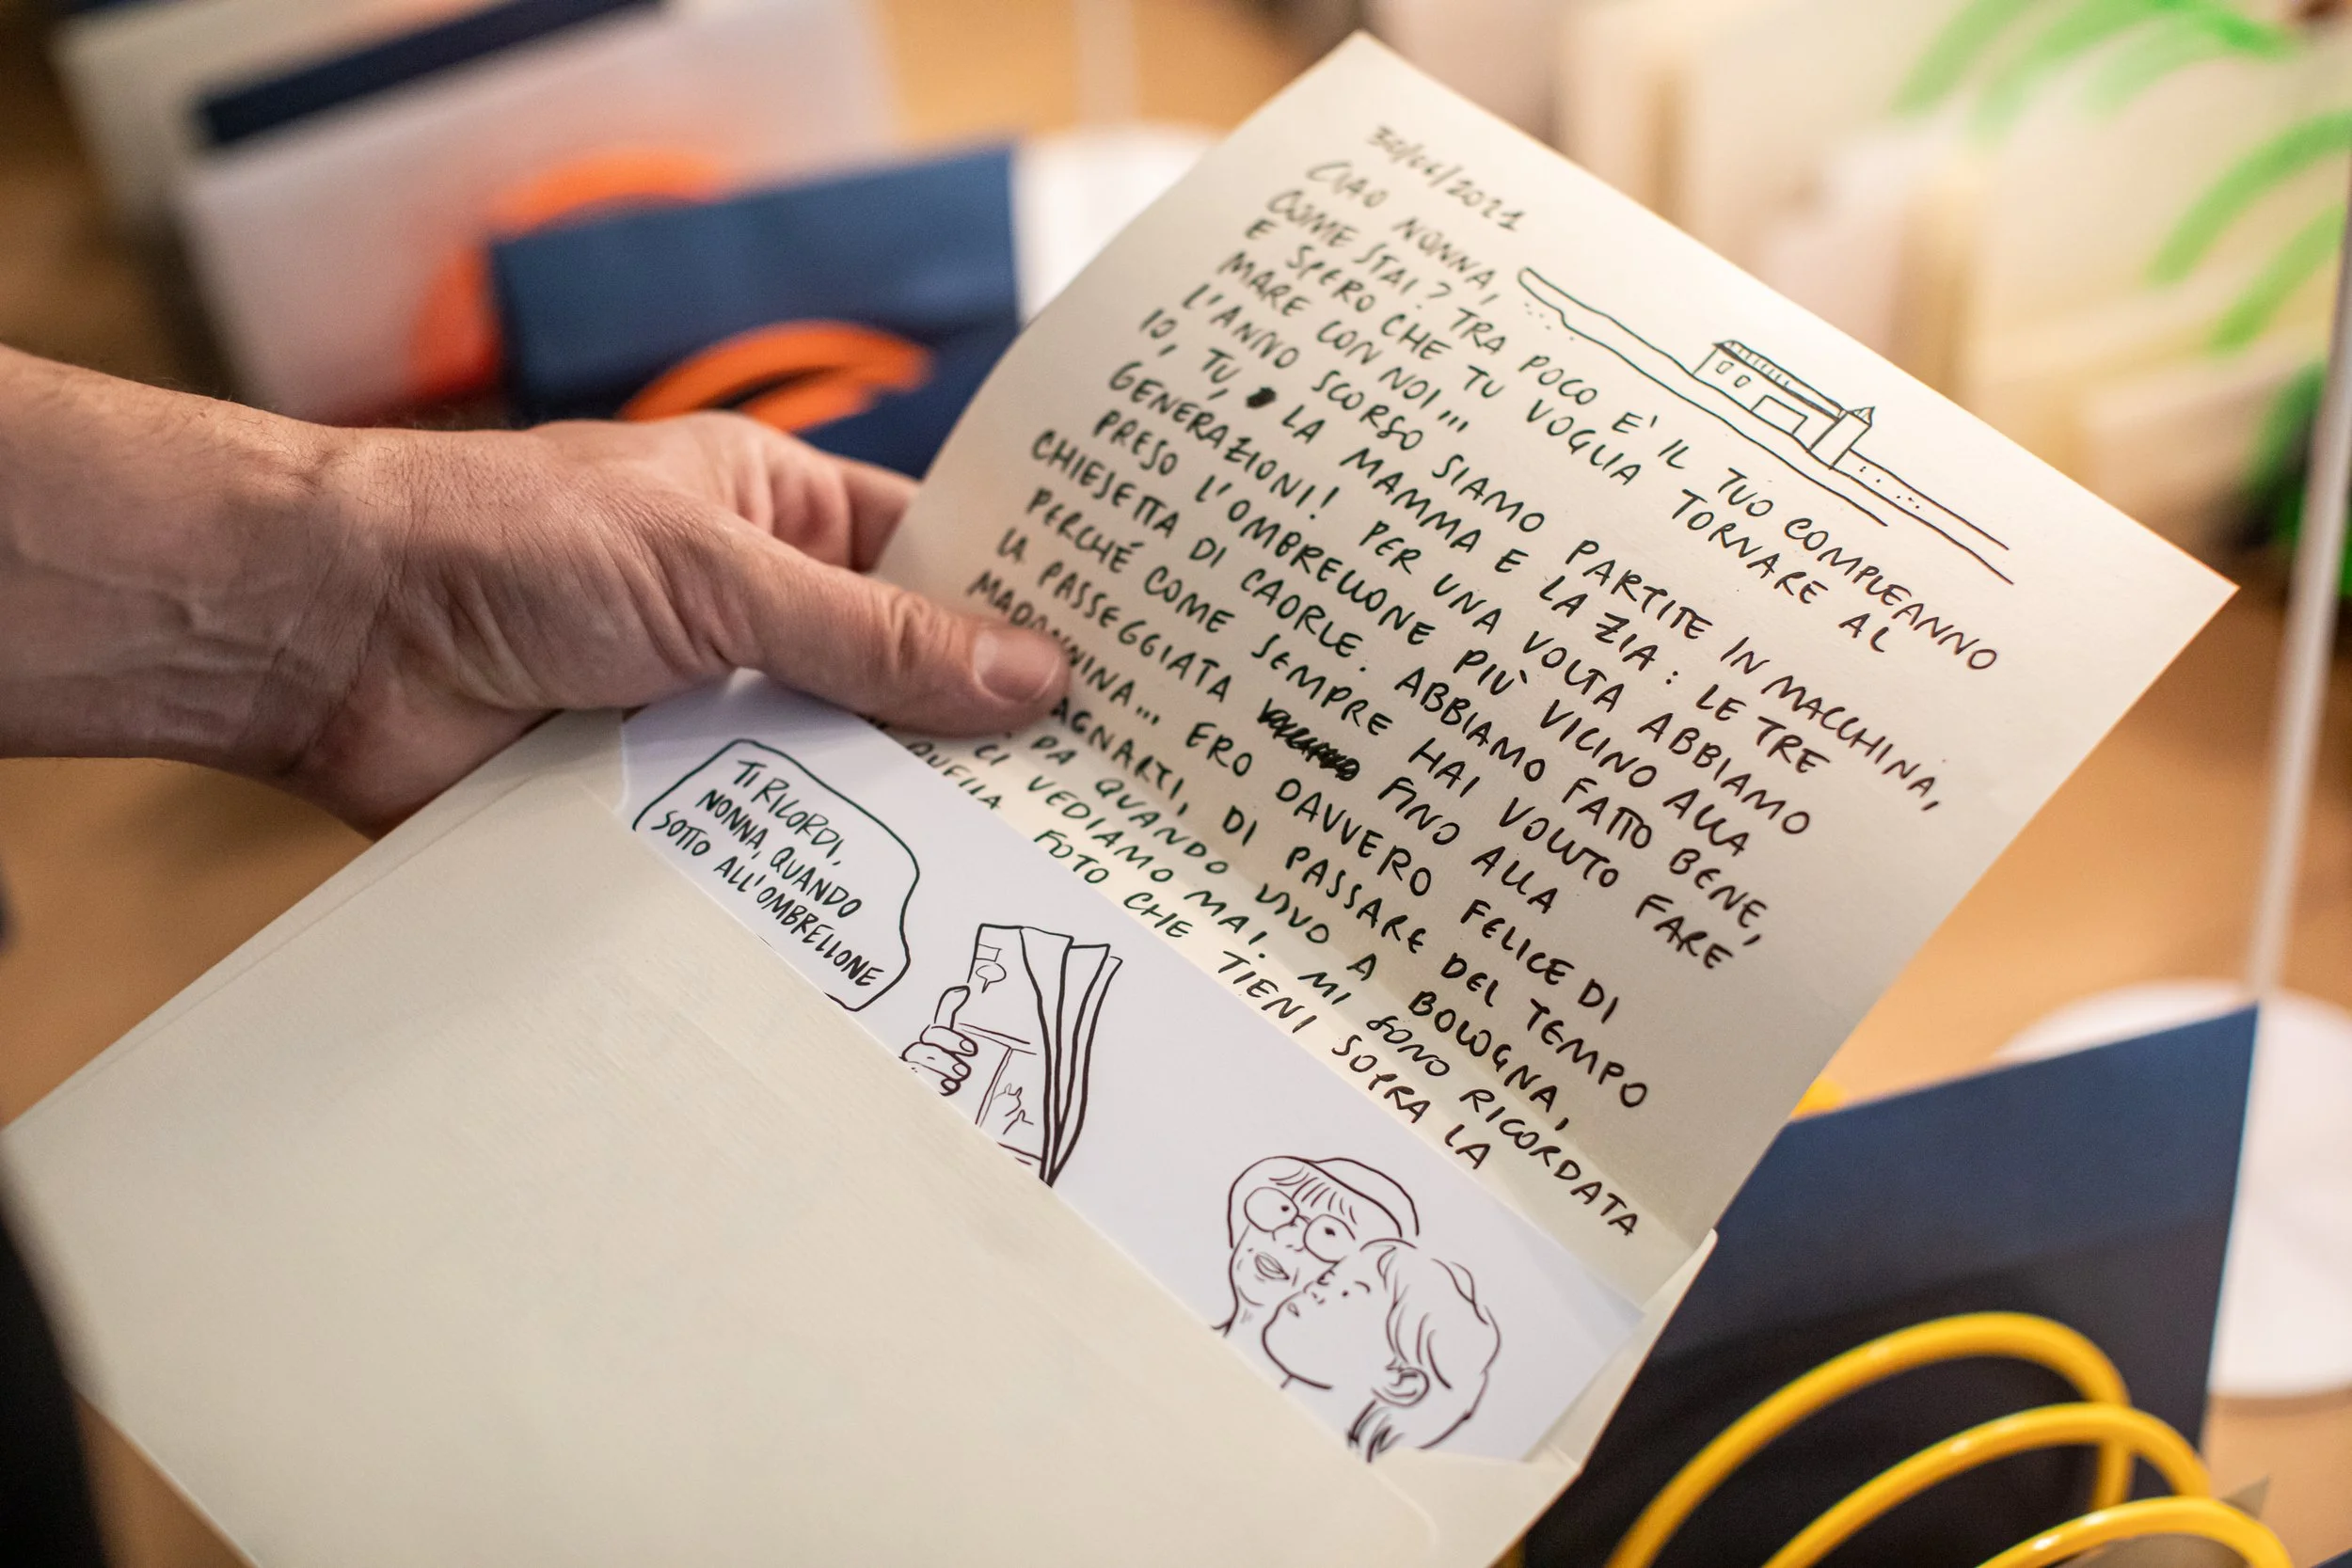 CIAO NONNA,
COME STAI? TRA POCO E' IL TUO COMPLEANNO
E SPERO CHE TU VOGLIA TORNARE AL
MARE CON NOI...
L'ANNO SCORSO SIAMO PARTITE IN MACCHINA,
IO, TU, LA MAMMA E LA ZIA: LE TRE
GENERAZIONI! PER UNA VOLTA ABBIAMO
PRESO L'OMBRELLONE PIÙ VICINO ALLA
CHIESETTA DI CAORLE. ABBIAMO FATTO BENE,
PERCHÉ COME SEMPRE HAI VOLUTO FARE
LA PASSEGGIATA FINO ALLA
MADONNINA... ERO DAVVERO FELICE DI
AGNARTI, DI PASSARE DEL TEMPO
DA QUANDO VIVO A BOLOGNA,
CI VEDIAMO MAI. MI SONO RICORDATA
QUELLA FOTO CHE TIENI SOPRA LA
TI RICORDI,
NONNA, QUANDO
SOTTO ALL'OMBRELLONE